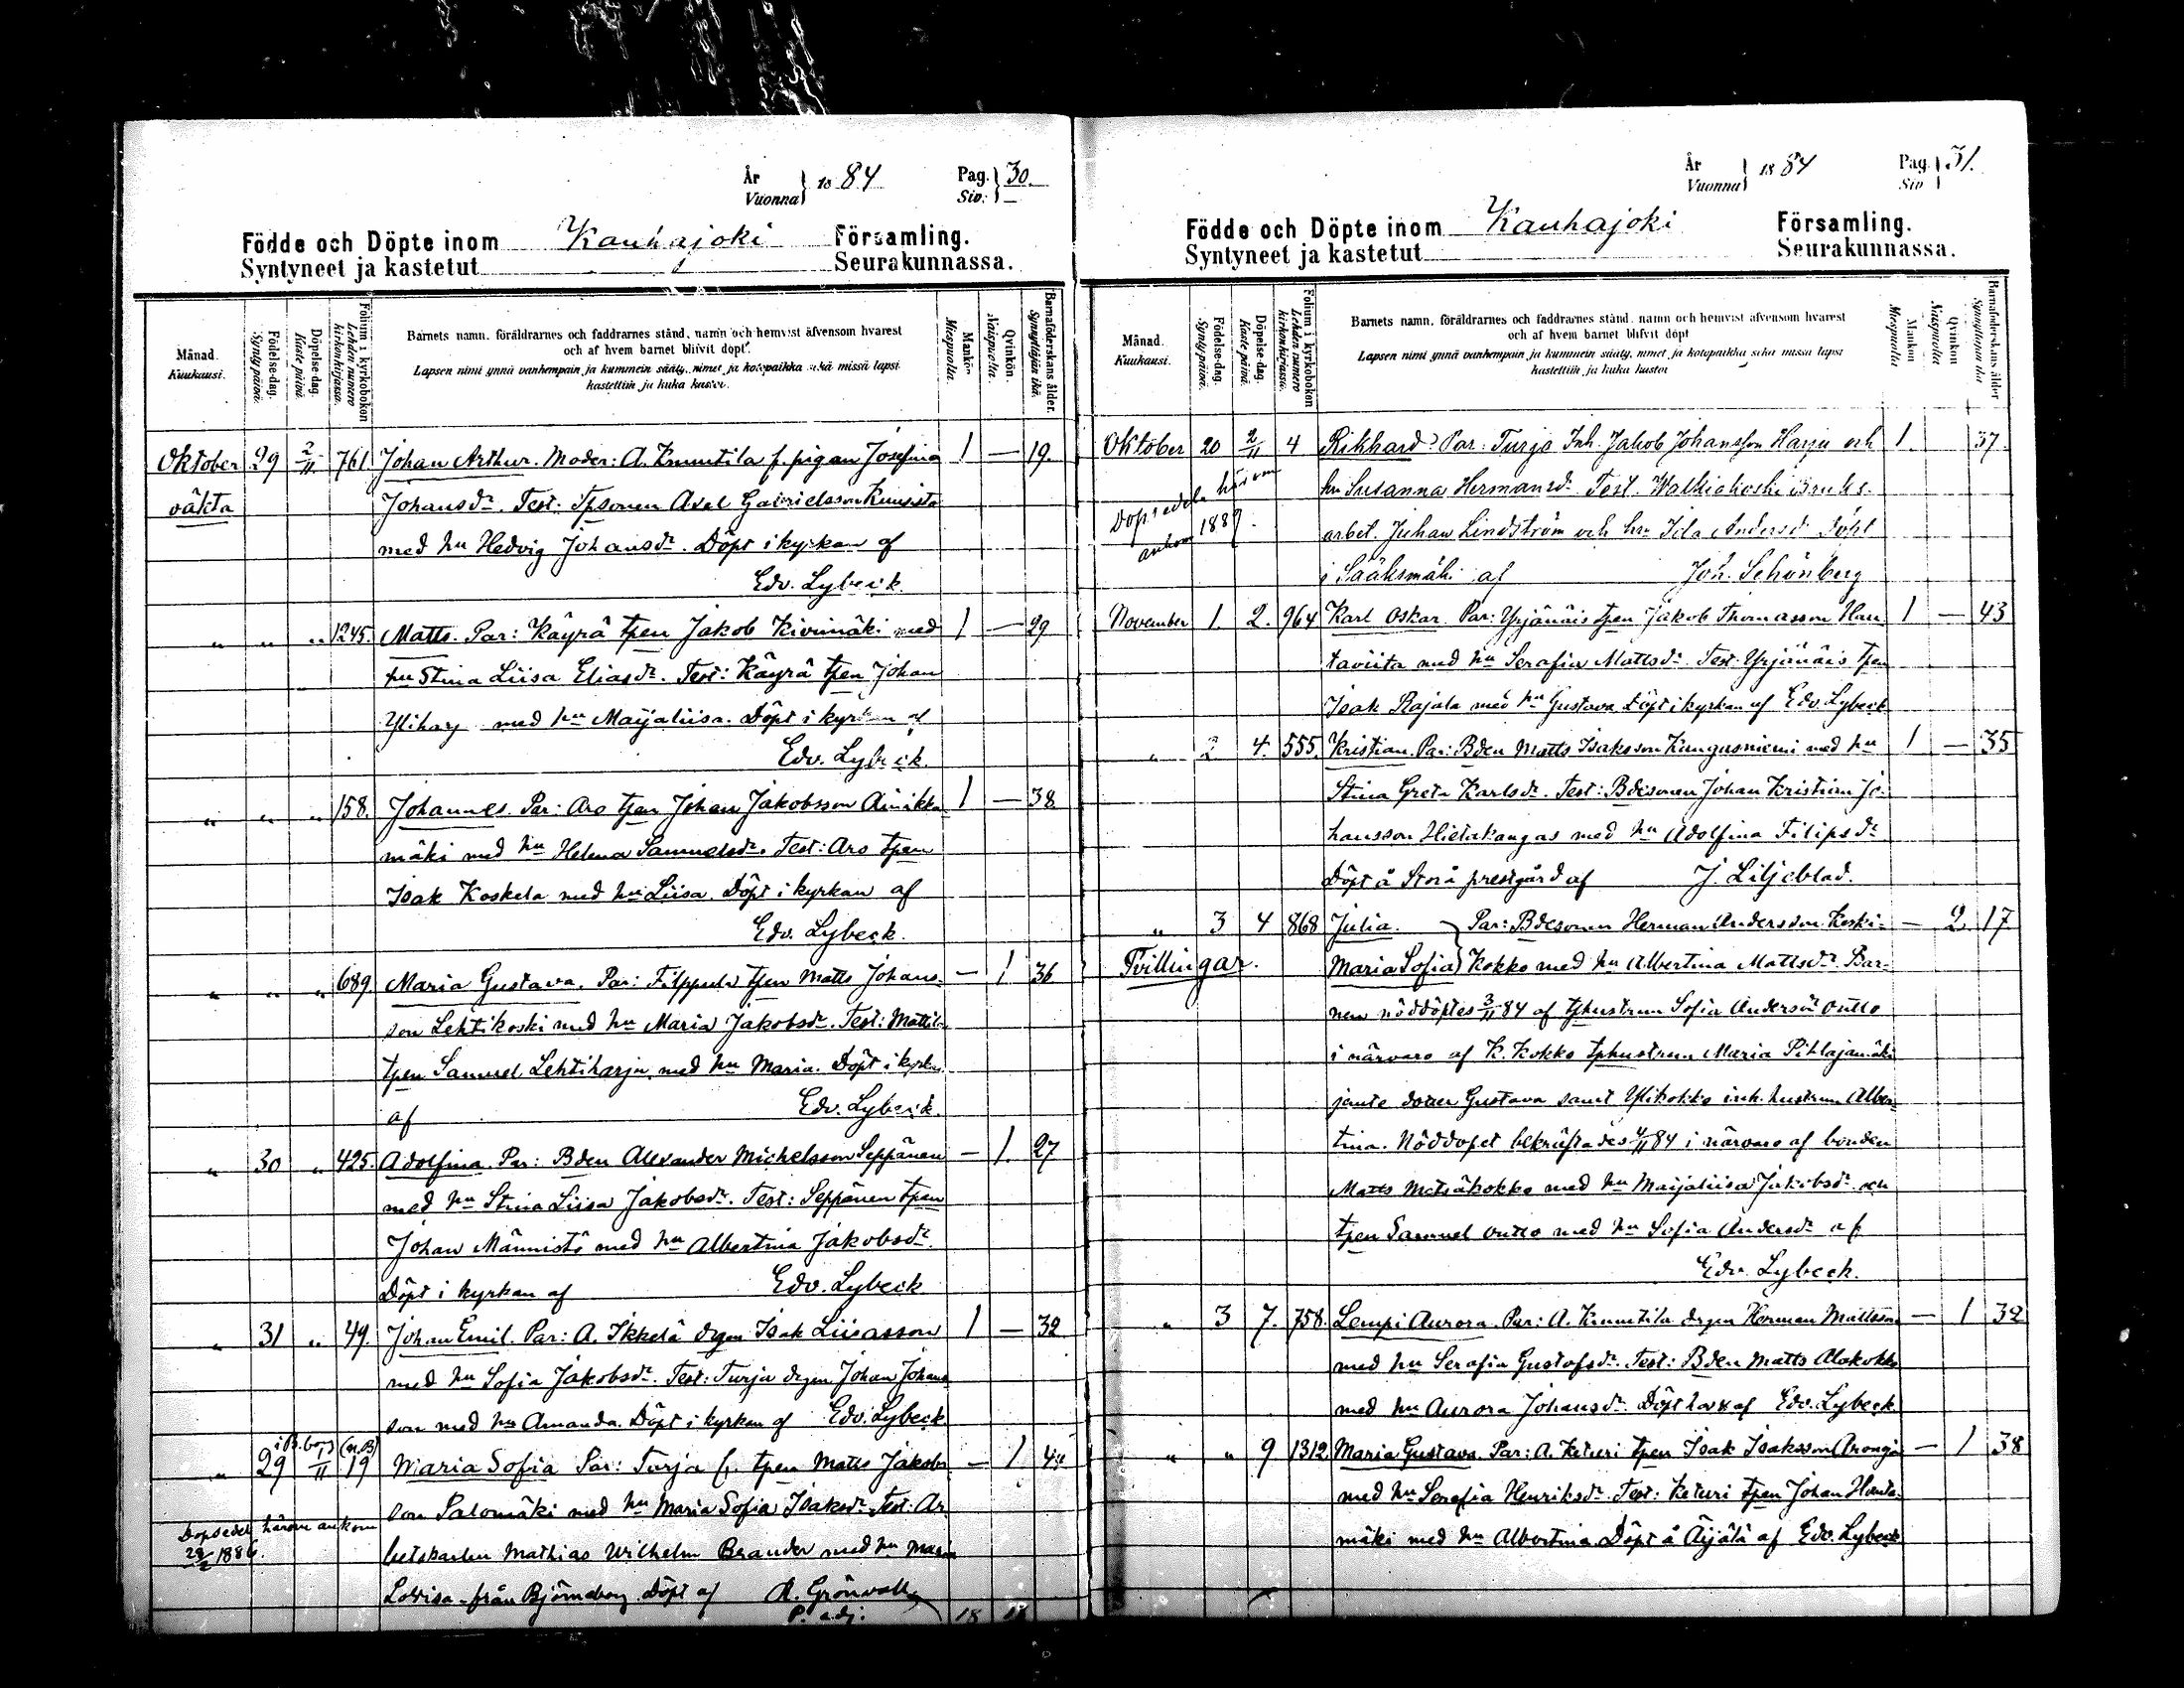 År
Vuonna } 1884 Pag. Siv. } 30.
Födde och Döpte inom Kauhajoki Församling.
Syntyneet ja kastetut Seurakunnassa.
Månad.
Kuukausi.
Födelse-dag.
Synty päivä.
Döpelse-dag.
Kaste päivä.
Folium i kyrkobokon
Lehden numero kirkonkirjassa.
Barnets namn, föräldrarnes och faddrarnes stånd, namn och hemvist äfvensom hvarest
och af hvem barnet blifvit döpt.
Lapsen nimi ynnä vanhempain ja kummein sääty, nimet ja kotopaikka sekä missä lapsi
kastettiin ja kuka kastoi.
Mankön.
Miespuolta.
Qvinkön.
Naispuolta.
Barnaföderskans ålder.
Synnyttäjän ikä.
Oktober 29 2/11 761 Johan Arthur. Moder: A. Knuutila f. pigan Josefina 1 — 19.
väkta Johansdr. Test: Tpsonen Axel Gabrielsson Kuusisto
med hu Hedvig Johansdr. Döpt i kyrkan af
Edv. Lybeck.
" " " 1245. Matts. Par: Käyrä tpen Jakob Kivimäki med 1 — 29
hu Stina Liisa Eliasdr. Test: Käyrä tpen Johan
Ylihary med hu Maijaliisa. Döpt i kyrkan af
Edv. Lybeck.
" " " 158. Johannes. Par: Aro tpen Johan Jakobsson Ainikka 1 — 38
mäki med hu Helena Samuelsdr. Test: Aro tpen
Isak Koskela med hu Liisa. Döpt i kyrkan af
Edv. Lybeck.
" " " 689. Maria Gustava. Par: Filppula tpen Matts Johans- — 1 36
son Lehtikoski med hu Maria Jakobsdr. Test: Mattila
tpen Samuel Lehtiharju med hu Maria. Döpt i kyrkan
af Edv. Lybeck.
" 30 " 425. Adolfina. Par: Bden Alexander Michelsson Seppänen — 1. 27
med hu Stina Liisa Jakobsdr. Test: Seppänen tpen
Johan Männistö med hu Albertina Jakobsdr.
Döpt i kyrkan af Edv. Lybeck
" 31 " 49. Johan Emil. Par: A. Ikkelä drgen Isak Liisasson 1 — 32
med hu Sofia Jakobsdr. Test: Turja drgen Johan Johans
son med hu Amanda. Döpt i kyrkan af Edv. Lybeck
" 29 1/11 19 Maria Sofia Par: Turja f. tpen Matts Jakobs — 1
son Salomäki med hu Maria Sofia Isaksdr. Test: Ar-
Dopsedel härom ankom
28/2 1886.
betskarlen Mathias Wilhelm Brander med hu Maria
Lovisa från Björneborg Döpt af A. Grönvall
P. adj. 18 18
År
Vuonna } 1884 Pag. Siv } 31.
Födde och Döpte inom Kauhajoki Församling.
Syntyneet ja kastetut Seurakunnassa.
Månad.
Kuukausi.
Födelse-dag.
Synty päivä.
Döpelse-dag.
Kaste päivä.
Folium i kyrkobokon
Lehden numero kirkonkirjassa.
Barnets namn, föräldrarnes och faddrarnes stånd, namn och hemvist äfvensom hvarest
och af hvem barnet blifvit döpt
Lapsen nimi ynnä vanhempain ja kummein sääty, nimet ja kotopaikka sekä missä lapsi
kastettiin ja kuka kastoi
Mankön
Miespuolta
Qvinkön
Naispuolta
Barnaföderskans ålder
Synnyttäjän ikä
Oktober 20 2/11 4 Rikhard. Par: Turja Inh. Jakob Johansson Harju och 1. 37.
Dopsedeln härom
ankom 1889.
hu Susanna Hermansd. Test. Walkiakoski Bruks.
arbet. Juhan Lindström och hu Ida Andersd. Döpt
i Sääksmäki af Joh. Schönberg
November 1. 2. 964 Karl Oskar. Par: Yrjänäis tpen Jakob Thomasson Han 1 — 43
taviita med hu Serafia Mattsdr. Test. Yrjänäis tpen
Isak Rajala med hu Gustava Döpt i kyrkan af Edv. Lybeck
" 2 4. 555. Kristian. Par: Bden Matts Isaksson Kangasniemi med hu 1 — 35
Stina Greta Karlsdr. Test: Bdesonen Johan Kristian Jo-
hansson Hietakangas med hu Adolfina Filipsdr
Döpt å Storå prestgård af J. Liljeblad.
" 3 4 868 Julia. } Par: Bdesonen Herman Andersson Koski- — 2 17
Tvillingar. Maria Sofia } Kokko med hu Albertina Mattsdr. Bar-
nen nöddöptes 3/11 84 af tphustrun Sofia Andersdr Outto
i närvaro af K. Kokko tphustrun Maria Pihlajamäki
jemte dotter Gustava samt Ylikokko inh. hustrun Alber-
tina. Nöddopet bekräftades 4/11 84 i närvaro af bonden
Matts Metsäkokko med hu Maijaliisa Jakobsdr och
tpen Samuel Outto med hu Sofia Andersdr af
Edv. Lybeck.
" 3 7. 758. Lempi Aurora. Par: A. Knuutila drgen Herman Mattsson — 1 32
med hu Serafia Gustafsdr. Test: Bden Matts Alakokko
med hu Aurora Johansdr. Döpt af Edv. Lybeck.
" " 9 1312. Maria Gustava. Par: A. Keturi tpen Isak Isaksson — 1 38
med hu Serafia Henriksdr. Test: Keturi tpen Johan Hanta-
mäki med hu Albertina Döpt å Äijälä af Edv. Lybeck